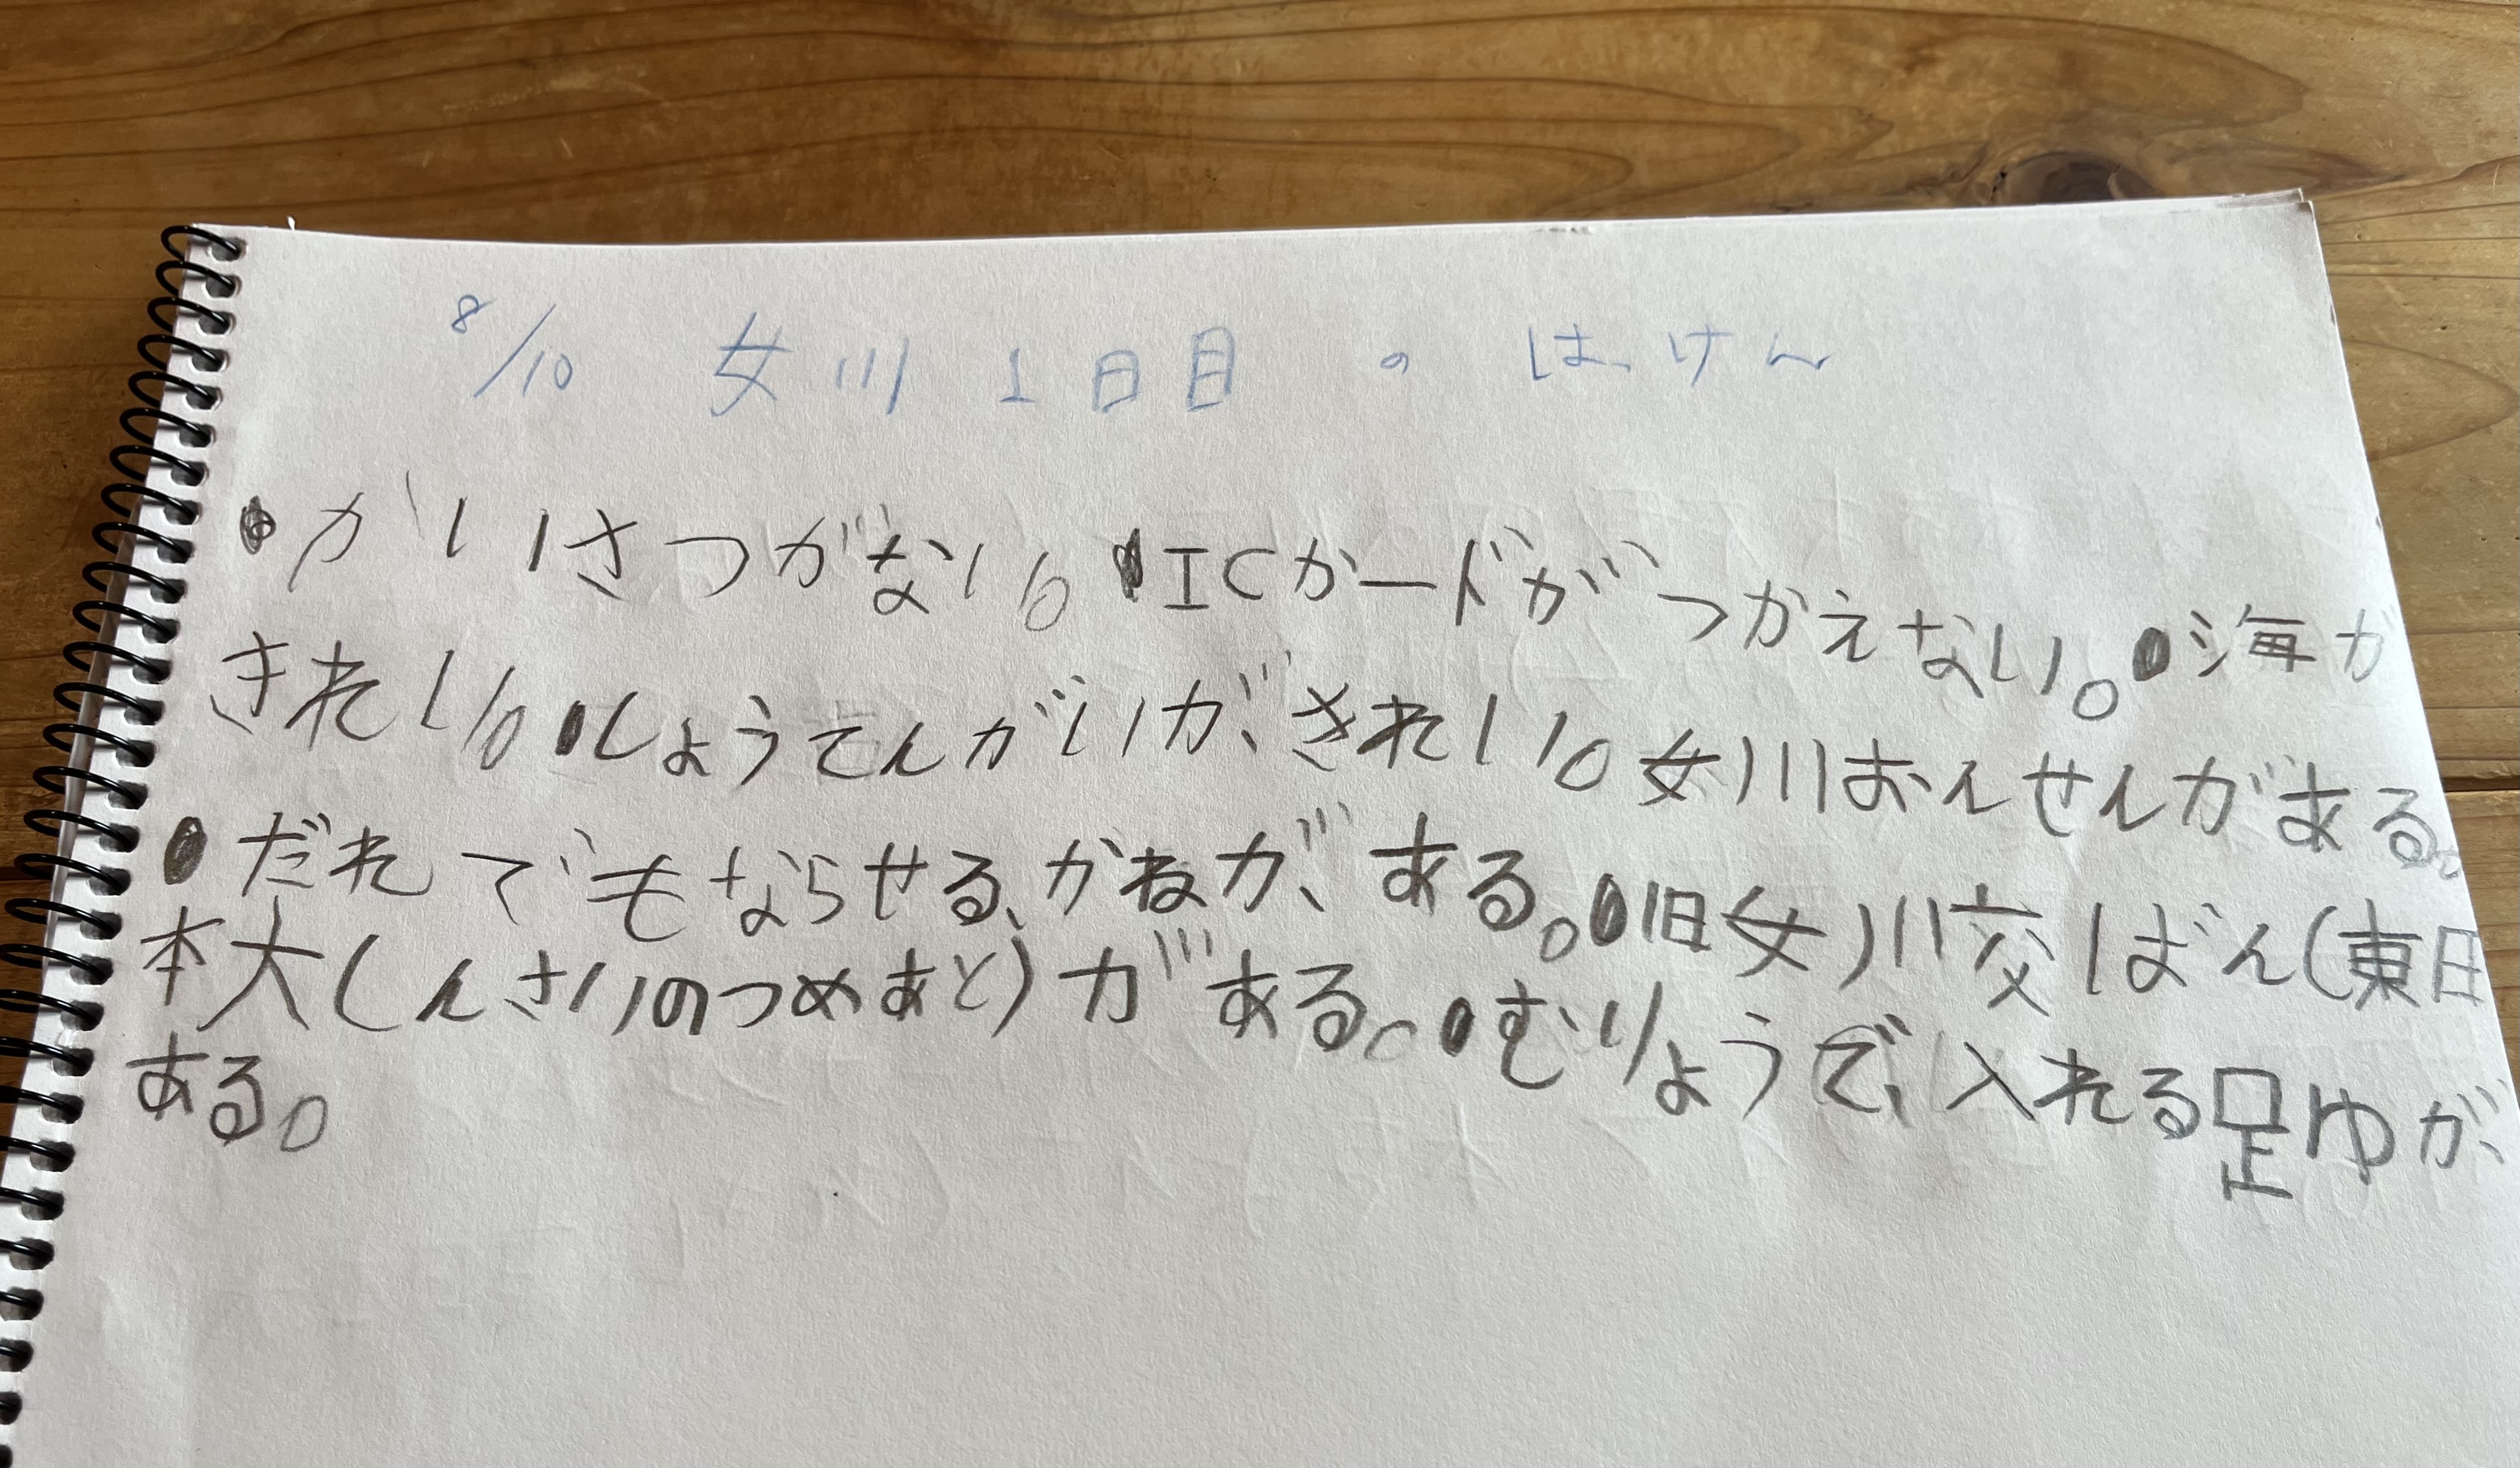 8/10 女川1日目 の はっけん
●かいさつがない。●ICカードがつかえない。●海が
きれい。●しょうてんがいが、きれい。女川おんせんがある。
●だれでもならせる、かねが、ある。●旧女川交ばん(東日
本大しんさいのつめあと)がある。●むりょうで、入れる足ゆが、
ある。